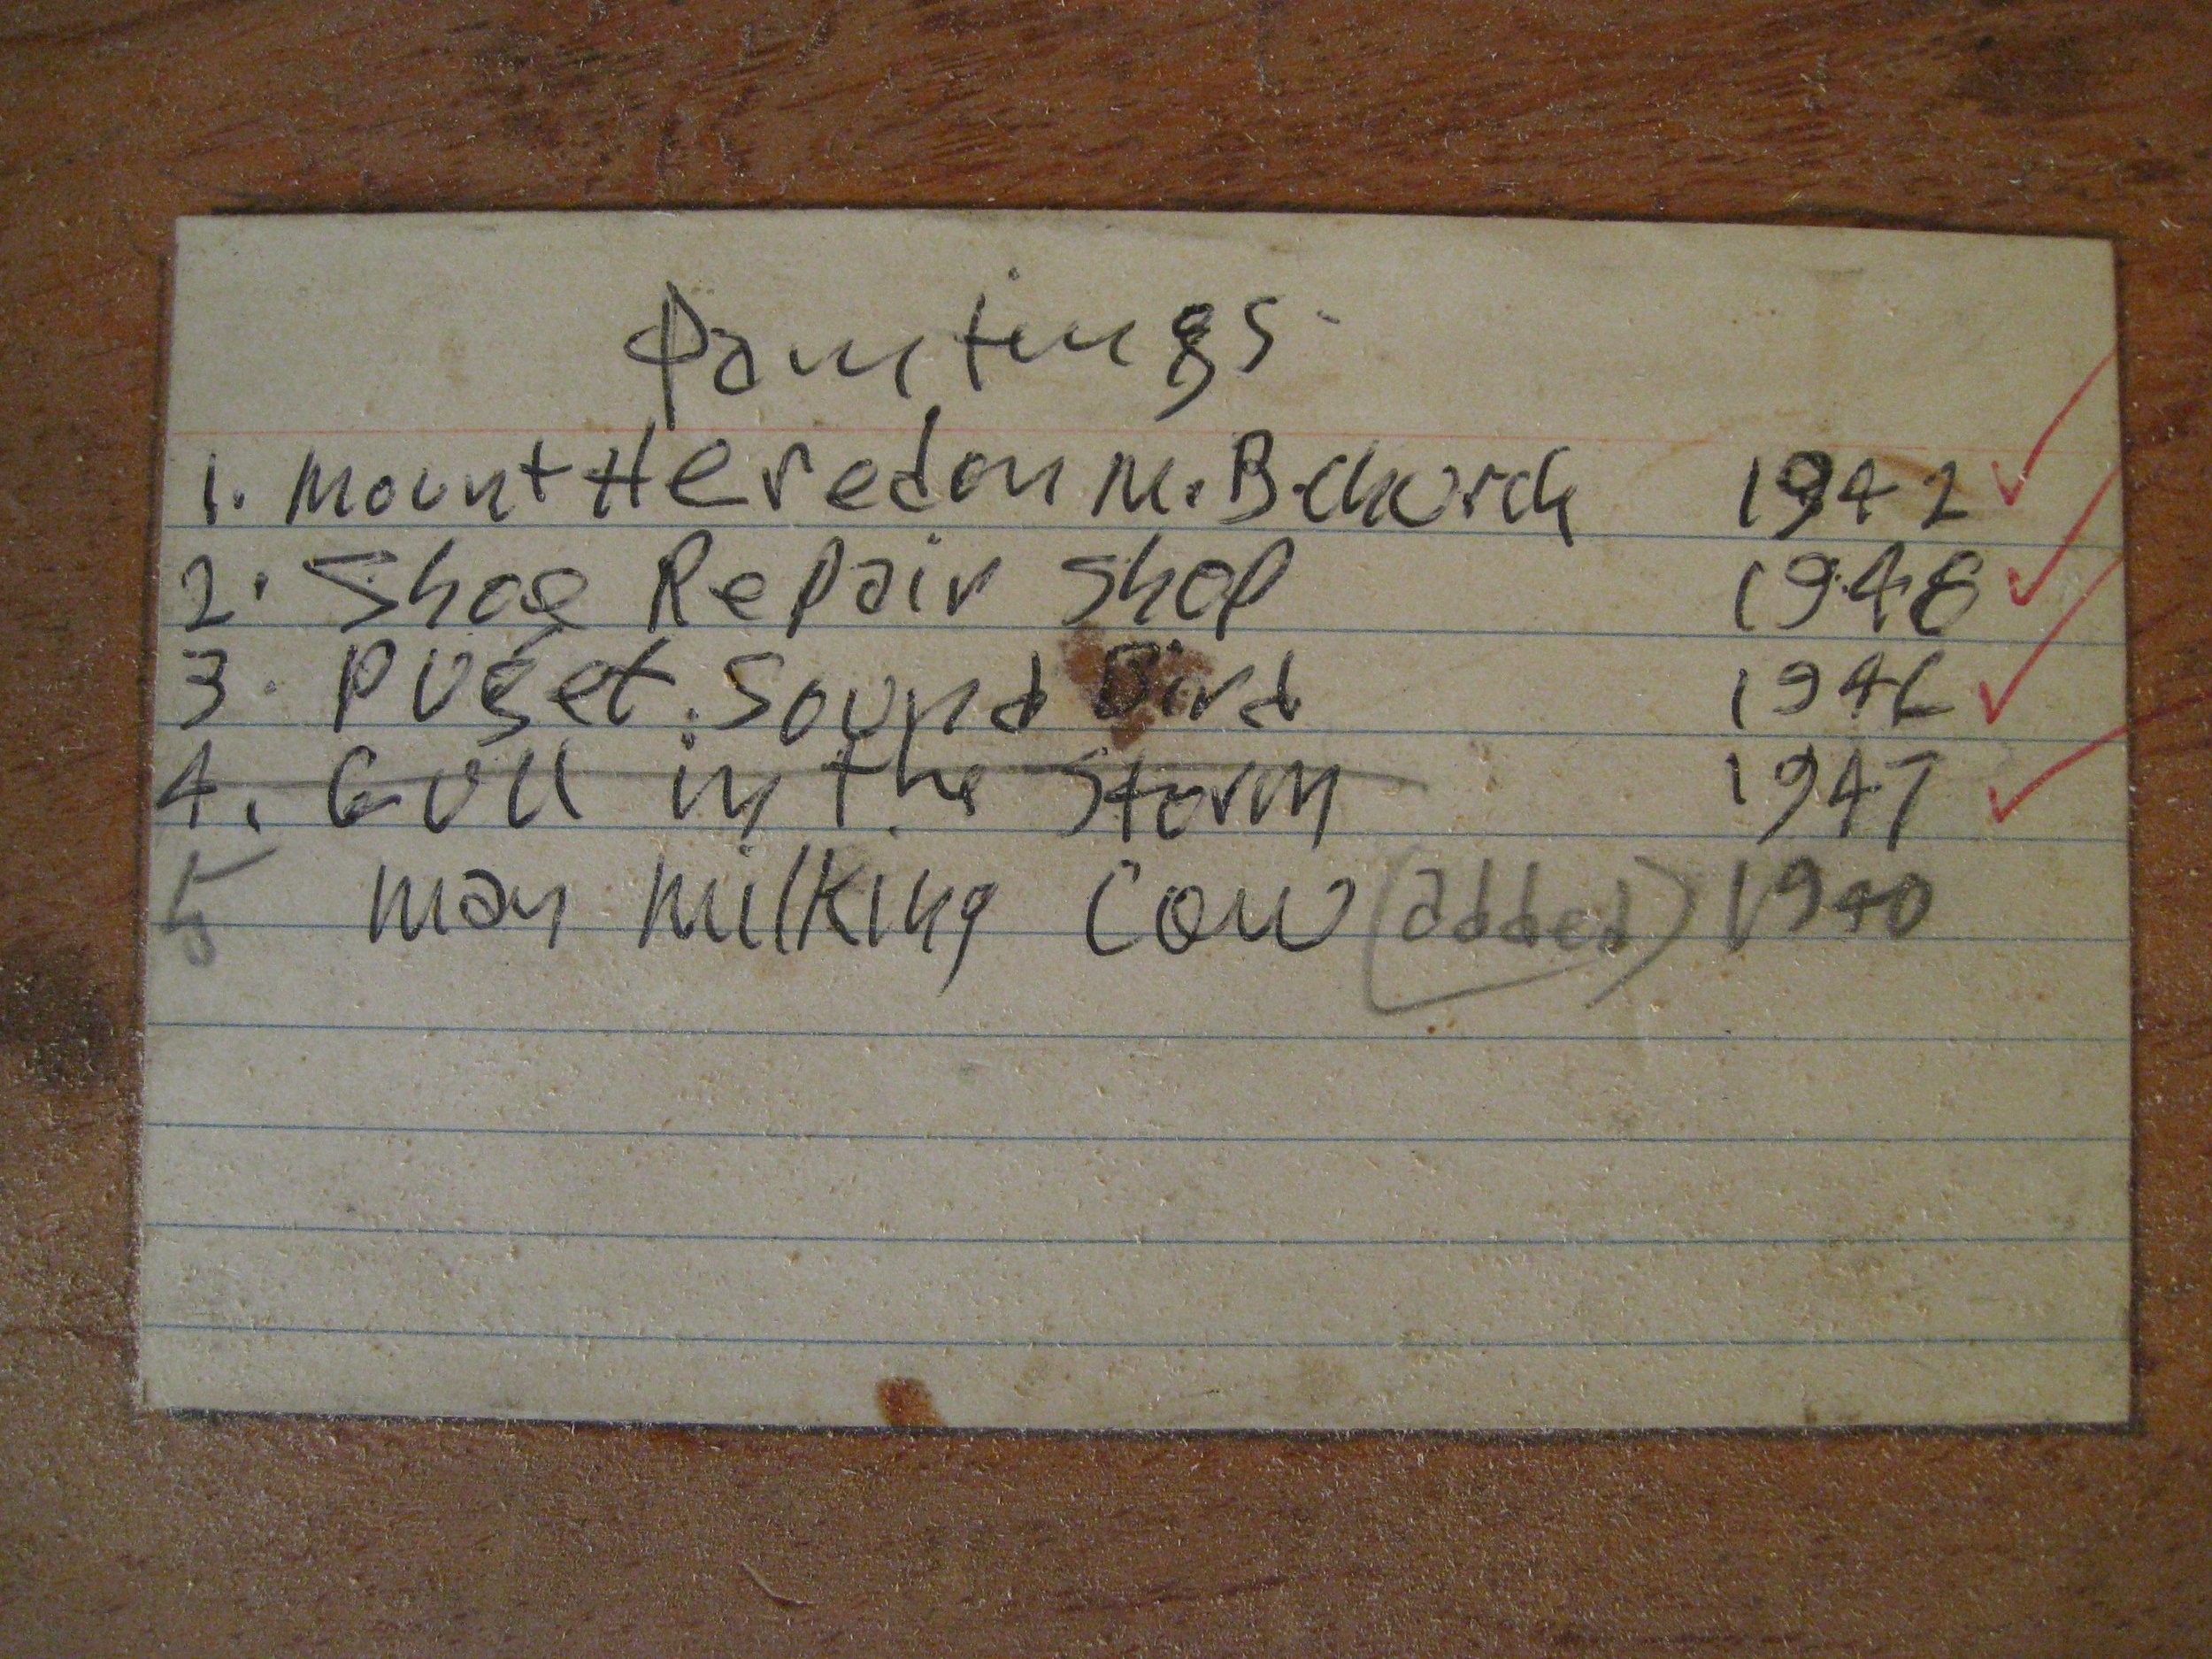 Paintings
1. Mount Heredon M.B. church 1942
2. Shoe Repair Shop 1948
3. Puget Sound Bird 1946
4. Gull in the Storm 1947
5 man milking Cow (added) 1940